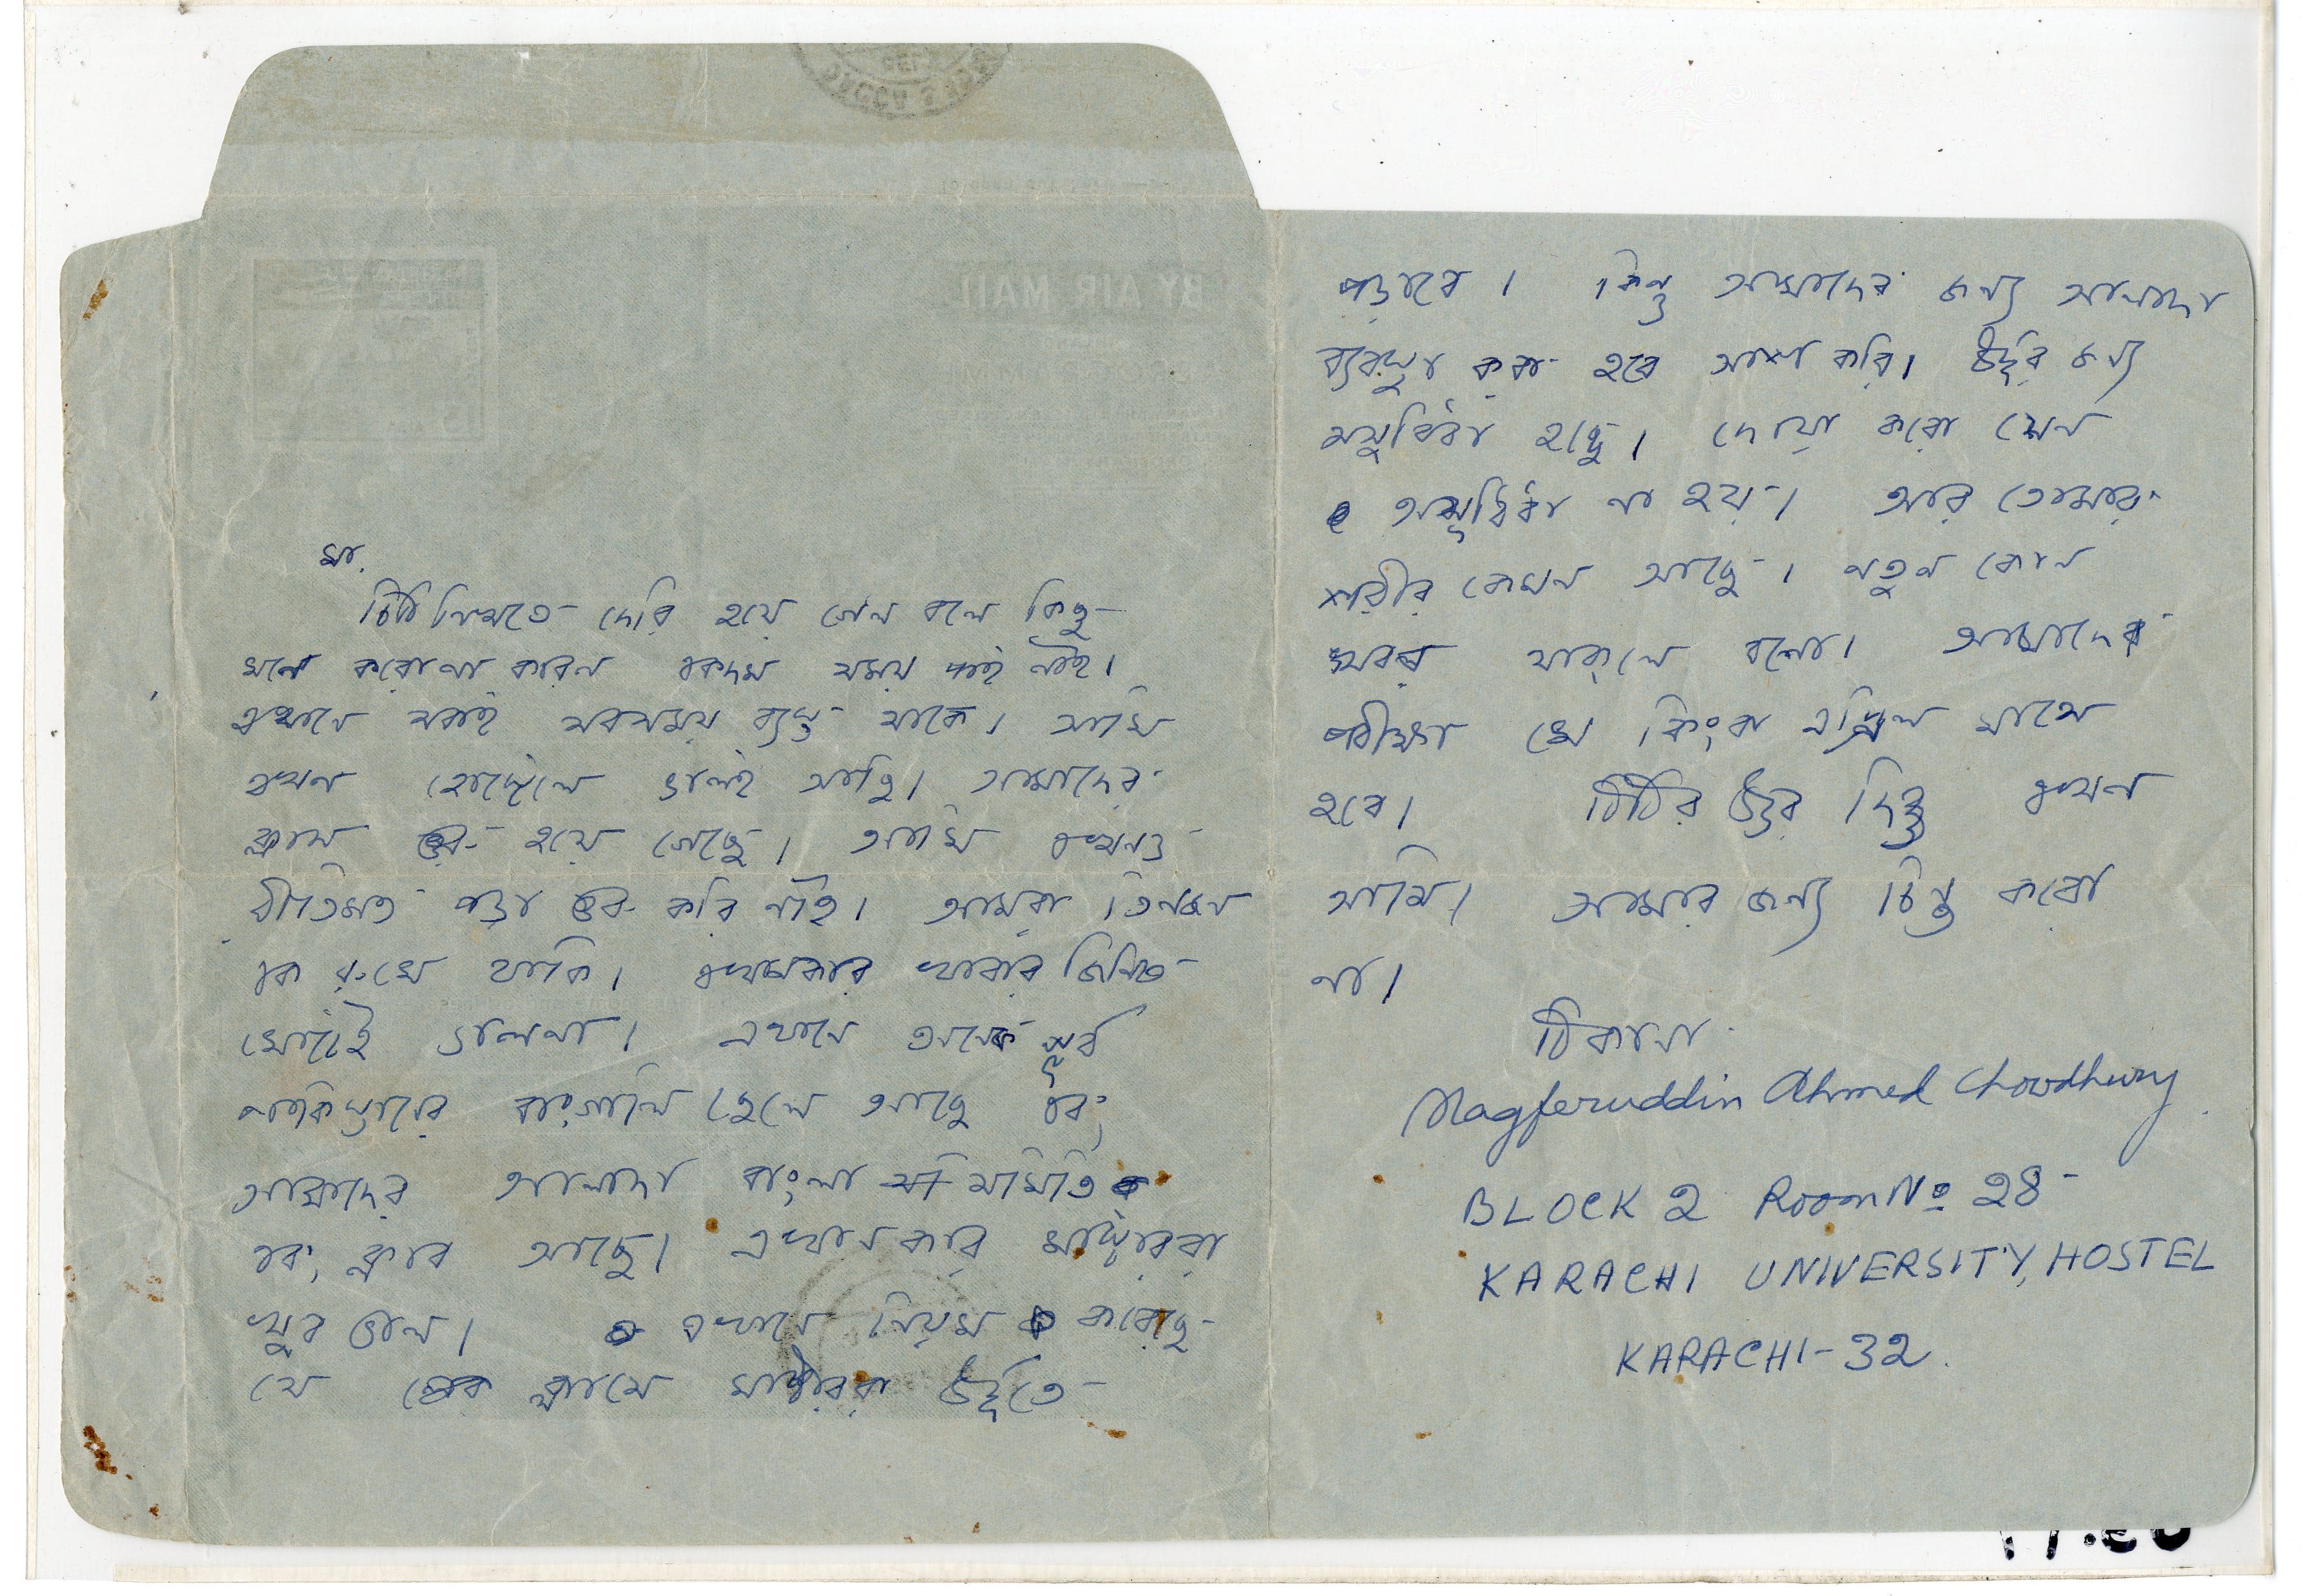 মা,
চিঠি লিখতে দেরি হয়ে গেল বলে কিছু
মনে করোনা কারন একদম সময় পাই নাই।
এখানে সবাই সবসময় ব্যস্ত থাকে। আমি
এখন হোষ্টেলে ভালই আছি। আমাদের
ক্লাস শুরু হয়ে গেছে। আমি এখনও
রীতিমত পড়া শুরু করি নাই। আমরা তিনজন
এক রুমে থাকি। এখানকার খাবার জিনিস
মোটেই ভালনা। এখানে অনেক পূর্ব
পাকিস্তানের বাংগালি ছেলে আছে এবং
আমাদের আলাদা বাংলা সমিতি
এবং ক্লাব আছে। এখানকার মাষ্টাররা
খুব ভাল। এখানে নিয়ম করেছে
যে সব ক্লাসে মাষ্টাররা উর্দুতে
পড়াবে। কিন্তু আমাদের জন্য আলাদা
ব্যবস্থা করা হবে আশা করি। উর্দুর জন্য
অসুবিধা হচ্ছে। দোয়া করো যেন
অসুবিধা না হয়। আর তোমার
শরীর কেমন আছে। নতুন কোন
খবর থাকলে বলো। আমাদের
পরীক্ষা মে কিংবা এপ্রিল মাসে
হবে। চিঠির উত্তর দিও এখন
আসি। আমার জন্য চিন্তা করো
না।
ঠিকানা
Magferuddin Ahmed Chowdhury
BLOCK 2 Room No 28
KARACHI UNIVERSITY, HOSTEL
KARACHI-32.
BY AIR MAIL